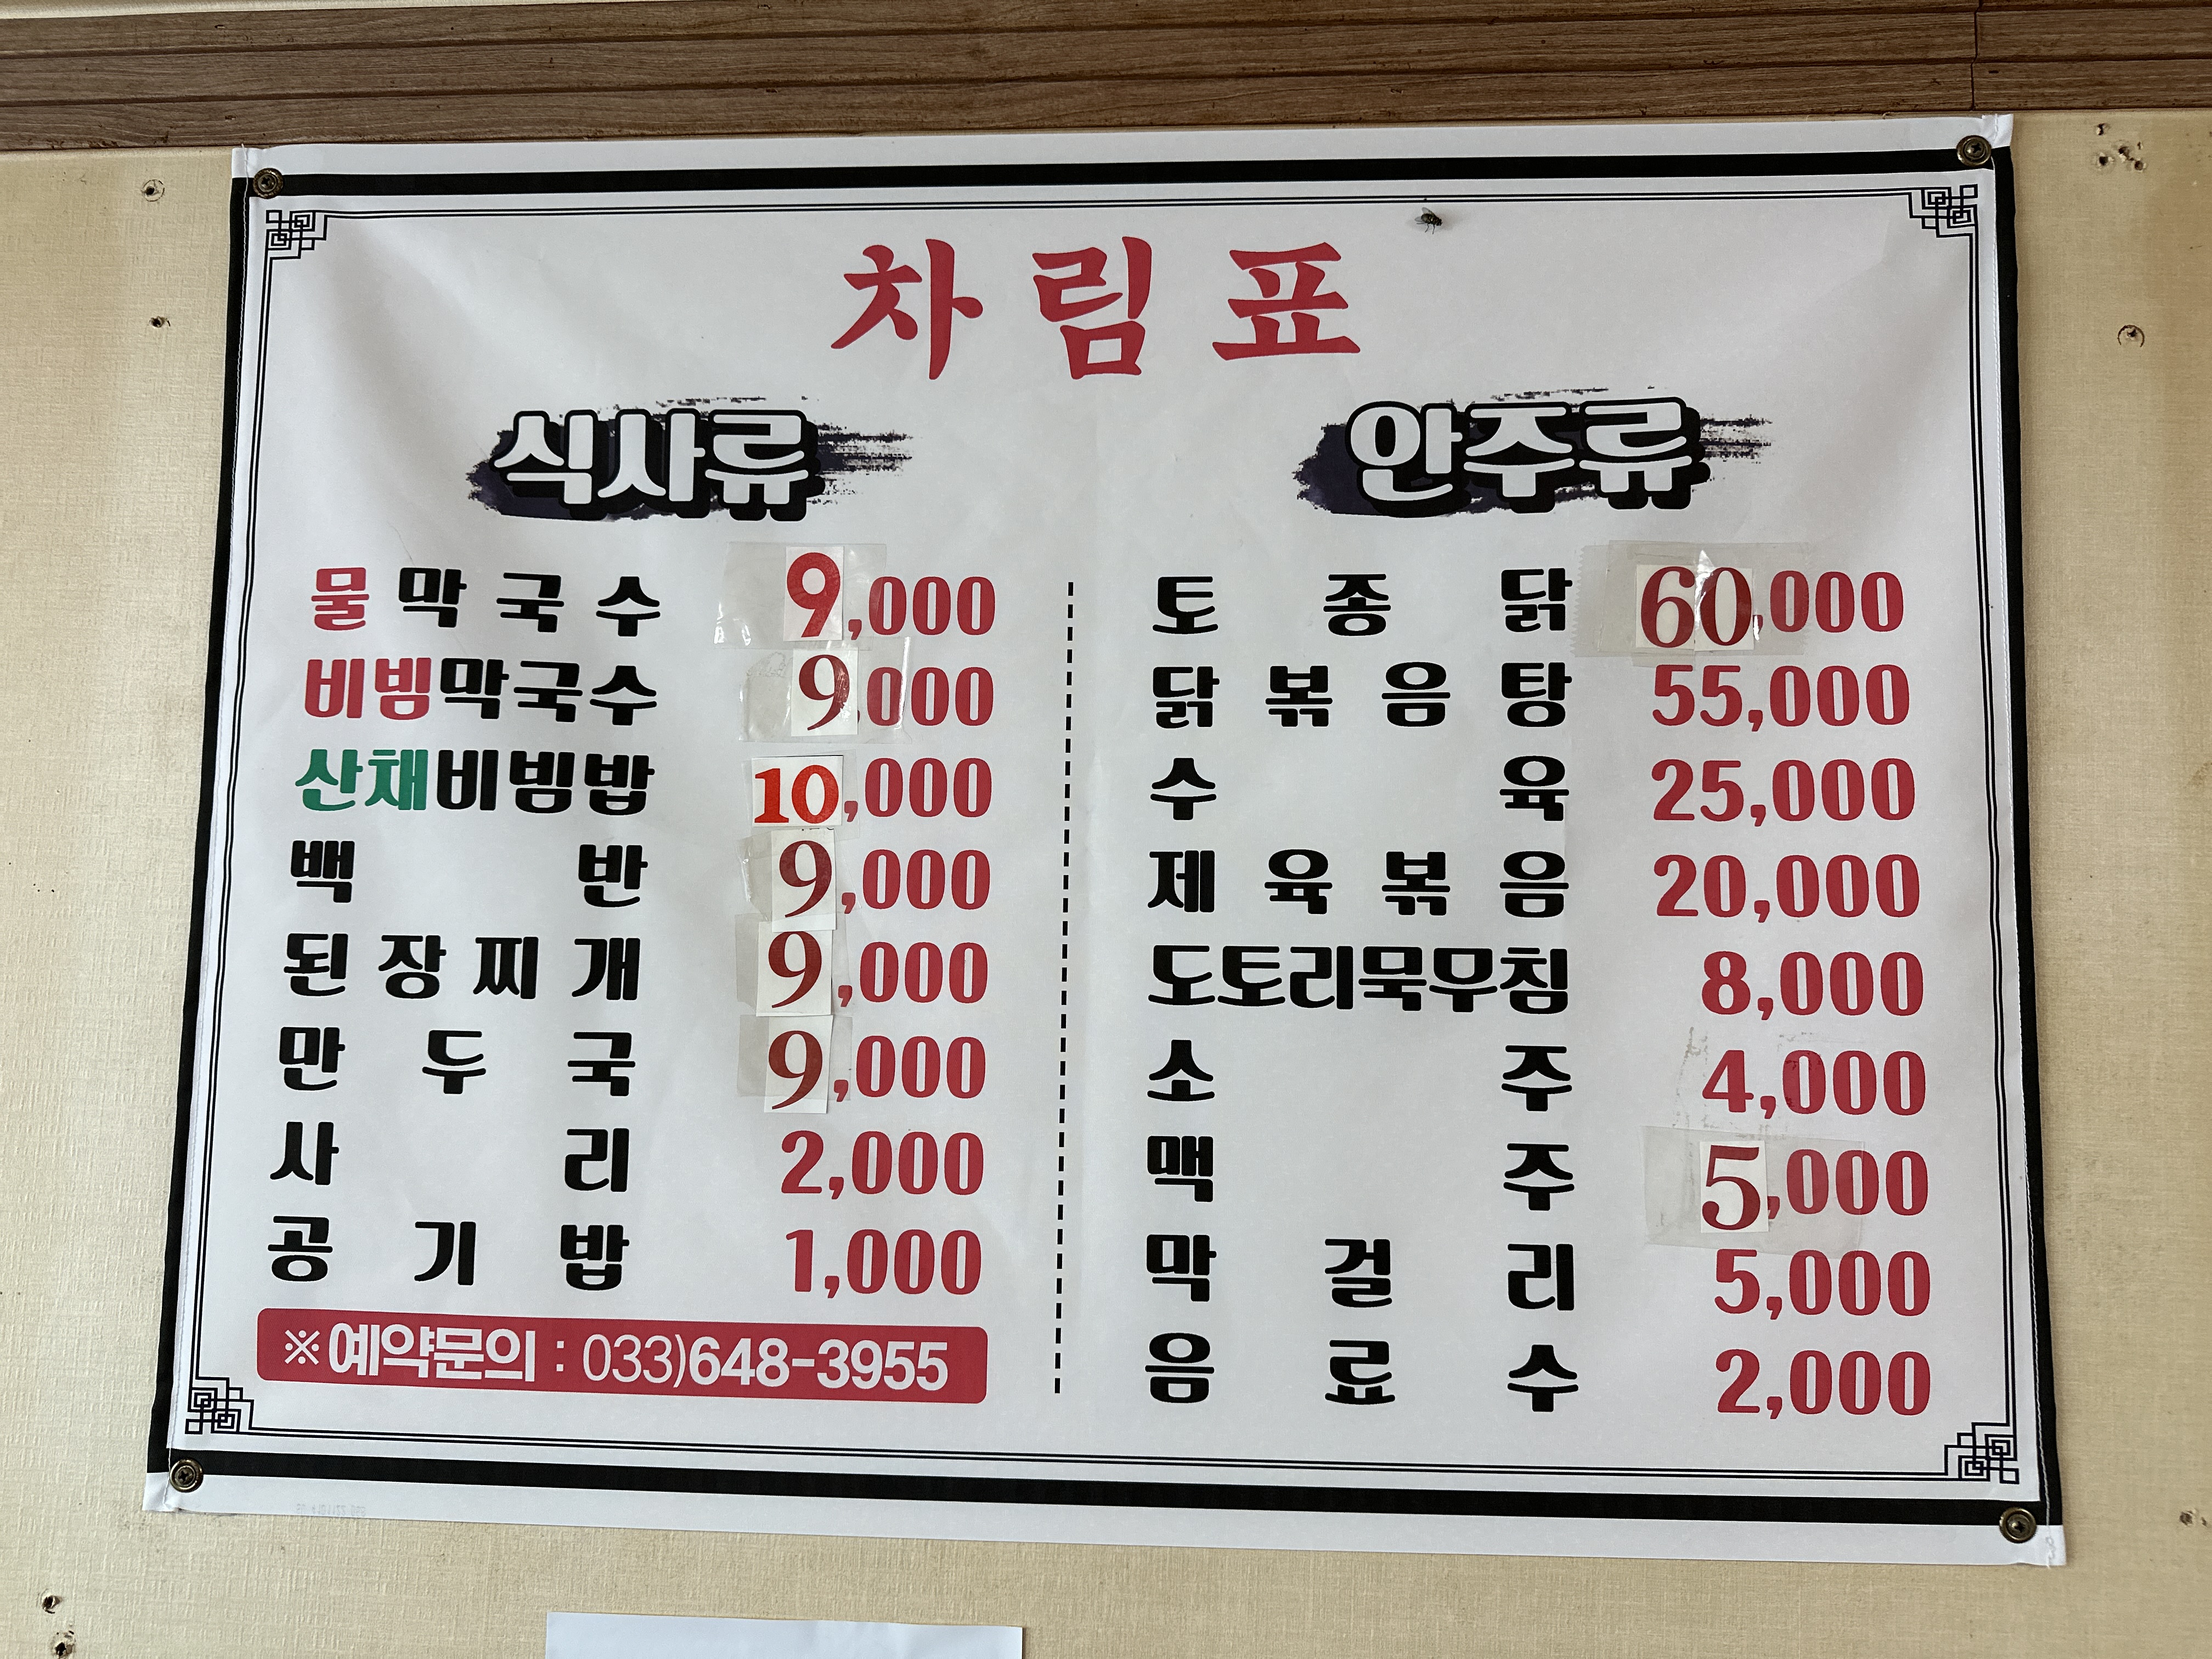 차림표
식사류
물막국수 9,000
비빔막국수 9,000
산채비빔밥 10,000
백반 9,000
된장찌개 9,000
만두국 9,000
사리 2,000
공기밥 1,000
※예약문의 : 033)648-3955
안주류
토종닭 60,000
닭볶음탕 55,000
수육 25,000
제육볶음 20,000
도토리묵무침 8,000
소주 4,000
맥주 5,000
막걸리 5,000
음료수 2,000